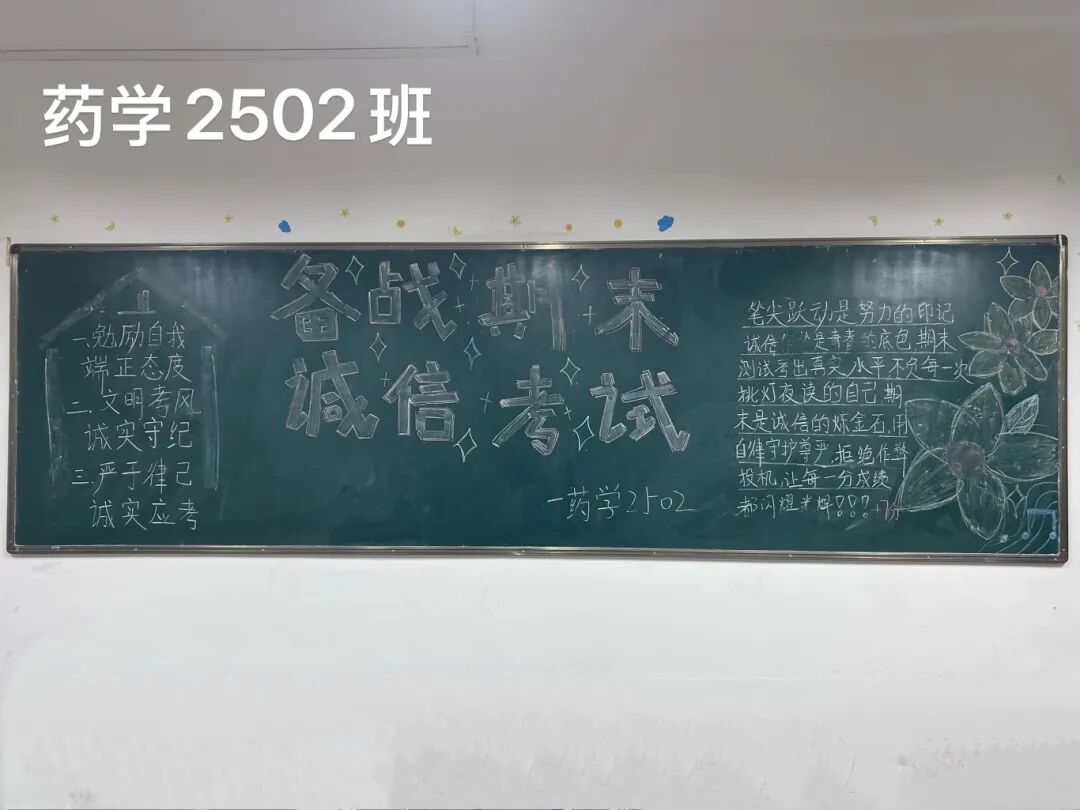 药学2502班
备战期末
诚信考试
一药学2502
一.勉励自我
端正态度
二.文明考风
诚实守纪
三.严于律己
诚实应考
笔尖跃动是努力的印记
诚信 是青春的底色,期末
测试考出真实水平不负每一次
挑灯夜读的自己期
末是诚信的炼金石,用
自律守护尊严,拒绝作弊
投机,让每一分成绩
都闪耀光辉!!!